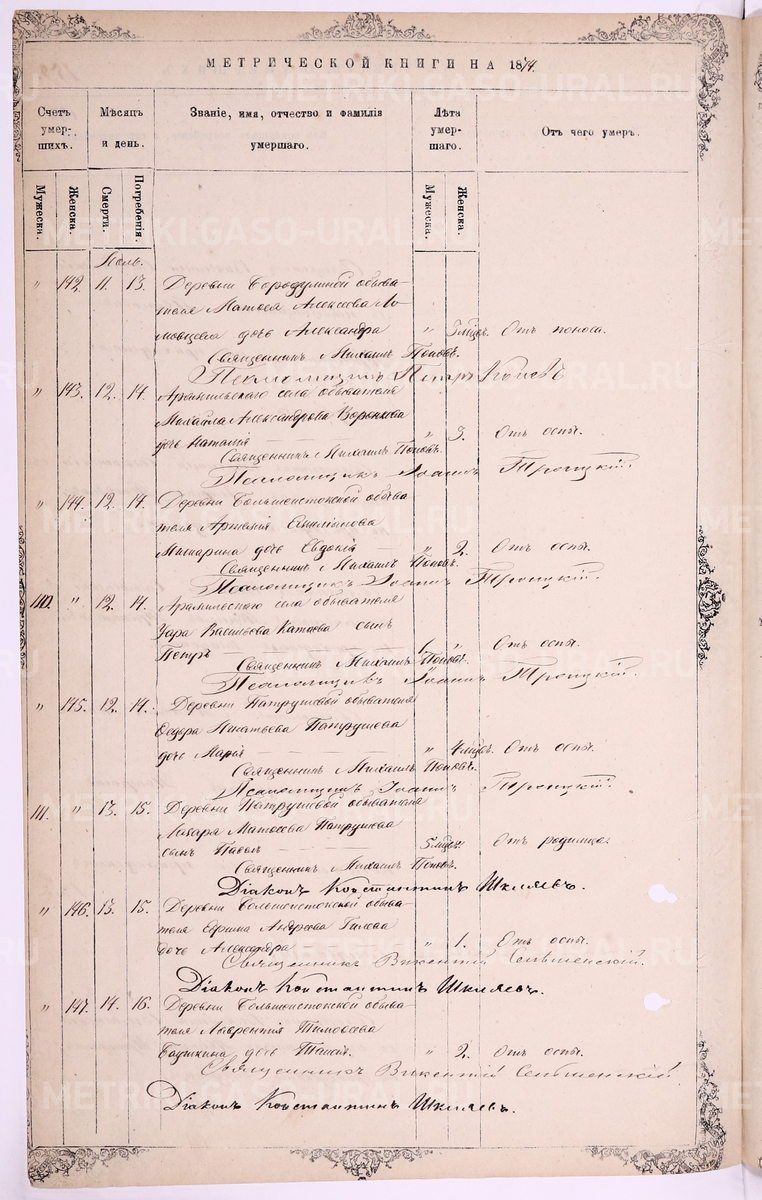 МЕТРИЧЕСКОЙ КНИГИ НА 1874.
Счетъ умер-шихъ.
Мѣсяцъ и день.
Званіе, имя, отчество и фамилія умершаго.
Лѣта умер-шаго.
Отъ чего умеръ.
Мужеска.
Женска.
Смерти.
Погребенія.
Мужеска.
Женска.
Іюль.
" 142. 11. 13. Деревни Бородулиной обыва-
теля Матвея Алексеева
дочь Александра " 5 мцовъ. Отъ поноса.
Священникъ Михаилъ Поповъ.
Псаломщикъ Петръ
" 143. 12. 14. Арамильскаго села обывателя
Михаила Александрова Воронкова
дочь Наталія " 3. Отъ оспы.
Священникъ Михаилъ Поповъ.
Псаломщикъ Іоаннъ Троицкій.
" 144. 12. 14. Деревни Большеистокской обыва-
теля Артемія
дочь Евдокія " 2. Отъ оспы.
Священникъ Михаилъ Поповъ.
Псаломщикъ Іоаннъ Троицкій.
110. " 12. 14. Арамильскаго села обывателя
Уара Васильева Катаева сынъ
Петръ 1. " Отъ оспы.
Священникъ Михаилъ Поповъ.
Псаломщикъ Іоаннъ Троицкій.
" 145. 12. 14. Деревни Патрушевой обывателя
Федора Игнатьева Патрушева
дочь Марія " 4 мцовъ. Отъ оспы.
Священникъ Михаилъ Поповъ.
Псаломщикъ Іоаннъ Троицкій.
111. " 13. 15. Деревни Патрушевой обывателя
Лазаря Матвеева Патрушева
сынъ Павелъ Отъ родимца.
Священникъ Михаилъ Поповъ.
Діаконъ Константинъ Шкляевъ.
" 146. 13. 15. Деревни Большеистокской обыва-
теля Ефима Андреева Гилева
дочь Александра " 1. Отъ оспы.
Священникъ Викентій
Діаконъ Константинъ Шкляевъ.
" 147. 14. 16. Деревни Большеистокской обыва-
теля Лаврентія Тимофеева
дочь Таисія. " 2. Отъ оспы.
Священникъ Викентій
Діаконъ Константинъ Шкляевъ.